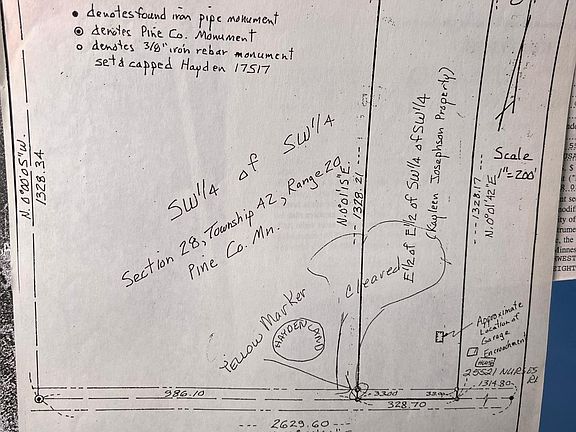 • denotes found iron pipe monument
⊙ denotes Pine Co. Monument
○ denotes 3/8" iron rebar monument
set & capped Hayden 17517
N. 0°00'05"W.
1328.34
SW 1/4 of SW 1/4
Section 28, Township 42, Range 20
Pine Co. Mn.
N.0°01'15"E.
1328.21
E 1/2 of E 1/2 of SW 1/4 of SW 1/4
(Kayleen Josephson Property)
1328.17
N.0°01'42"E
Scale
1"=200'
Cleared
Yellow Marker
HAYDEN LAND
Approximate
Location of
Garage
Encroachment
25521 NURSES
Rd
986.10
33.00
328.70
1314.80
2629.60